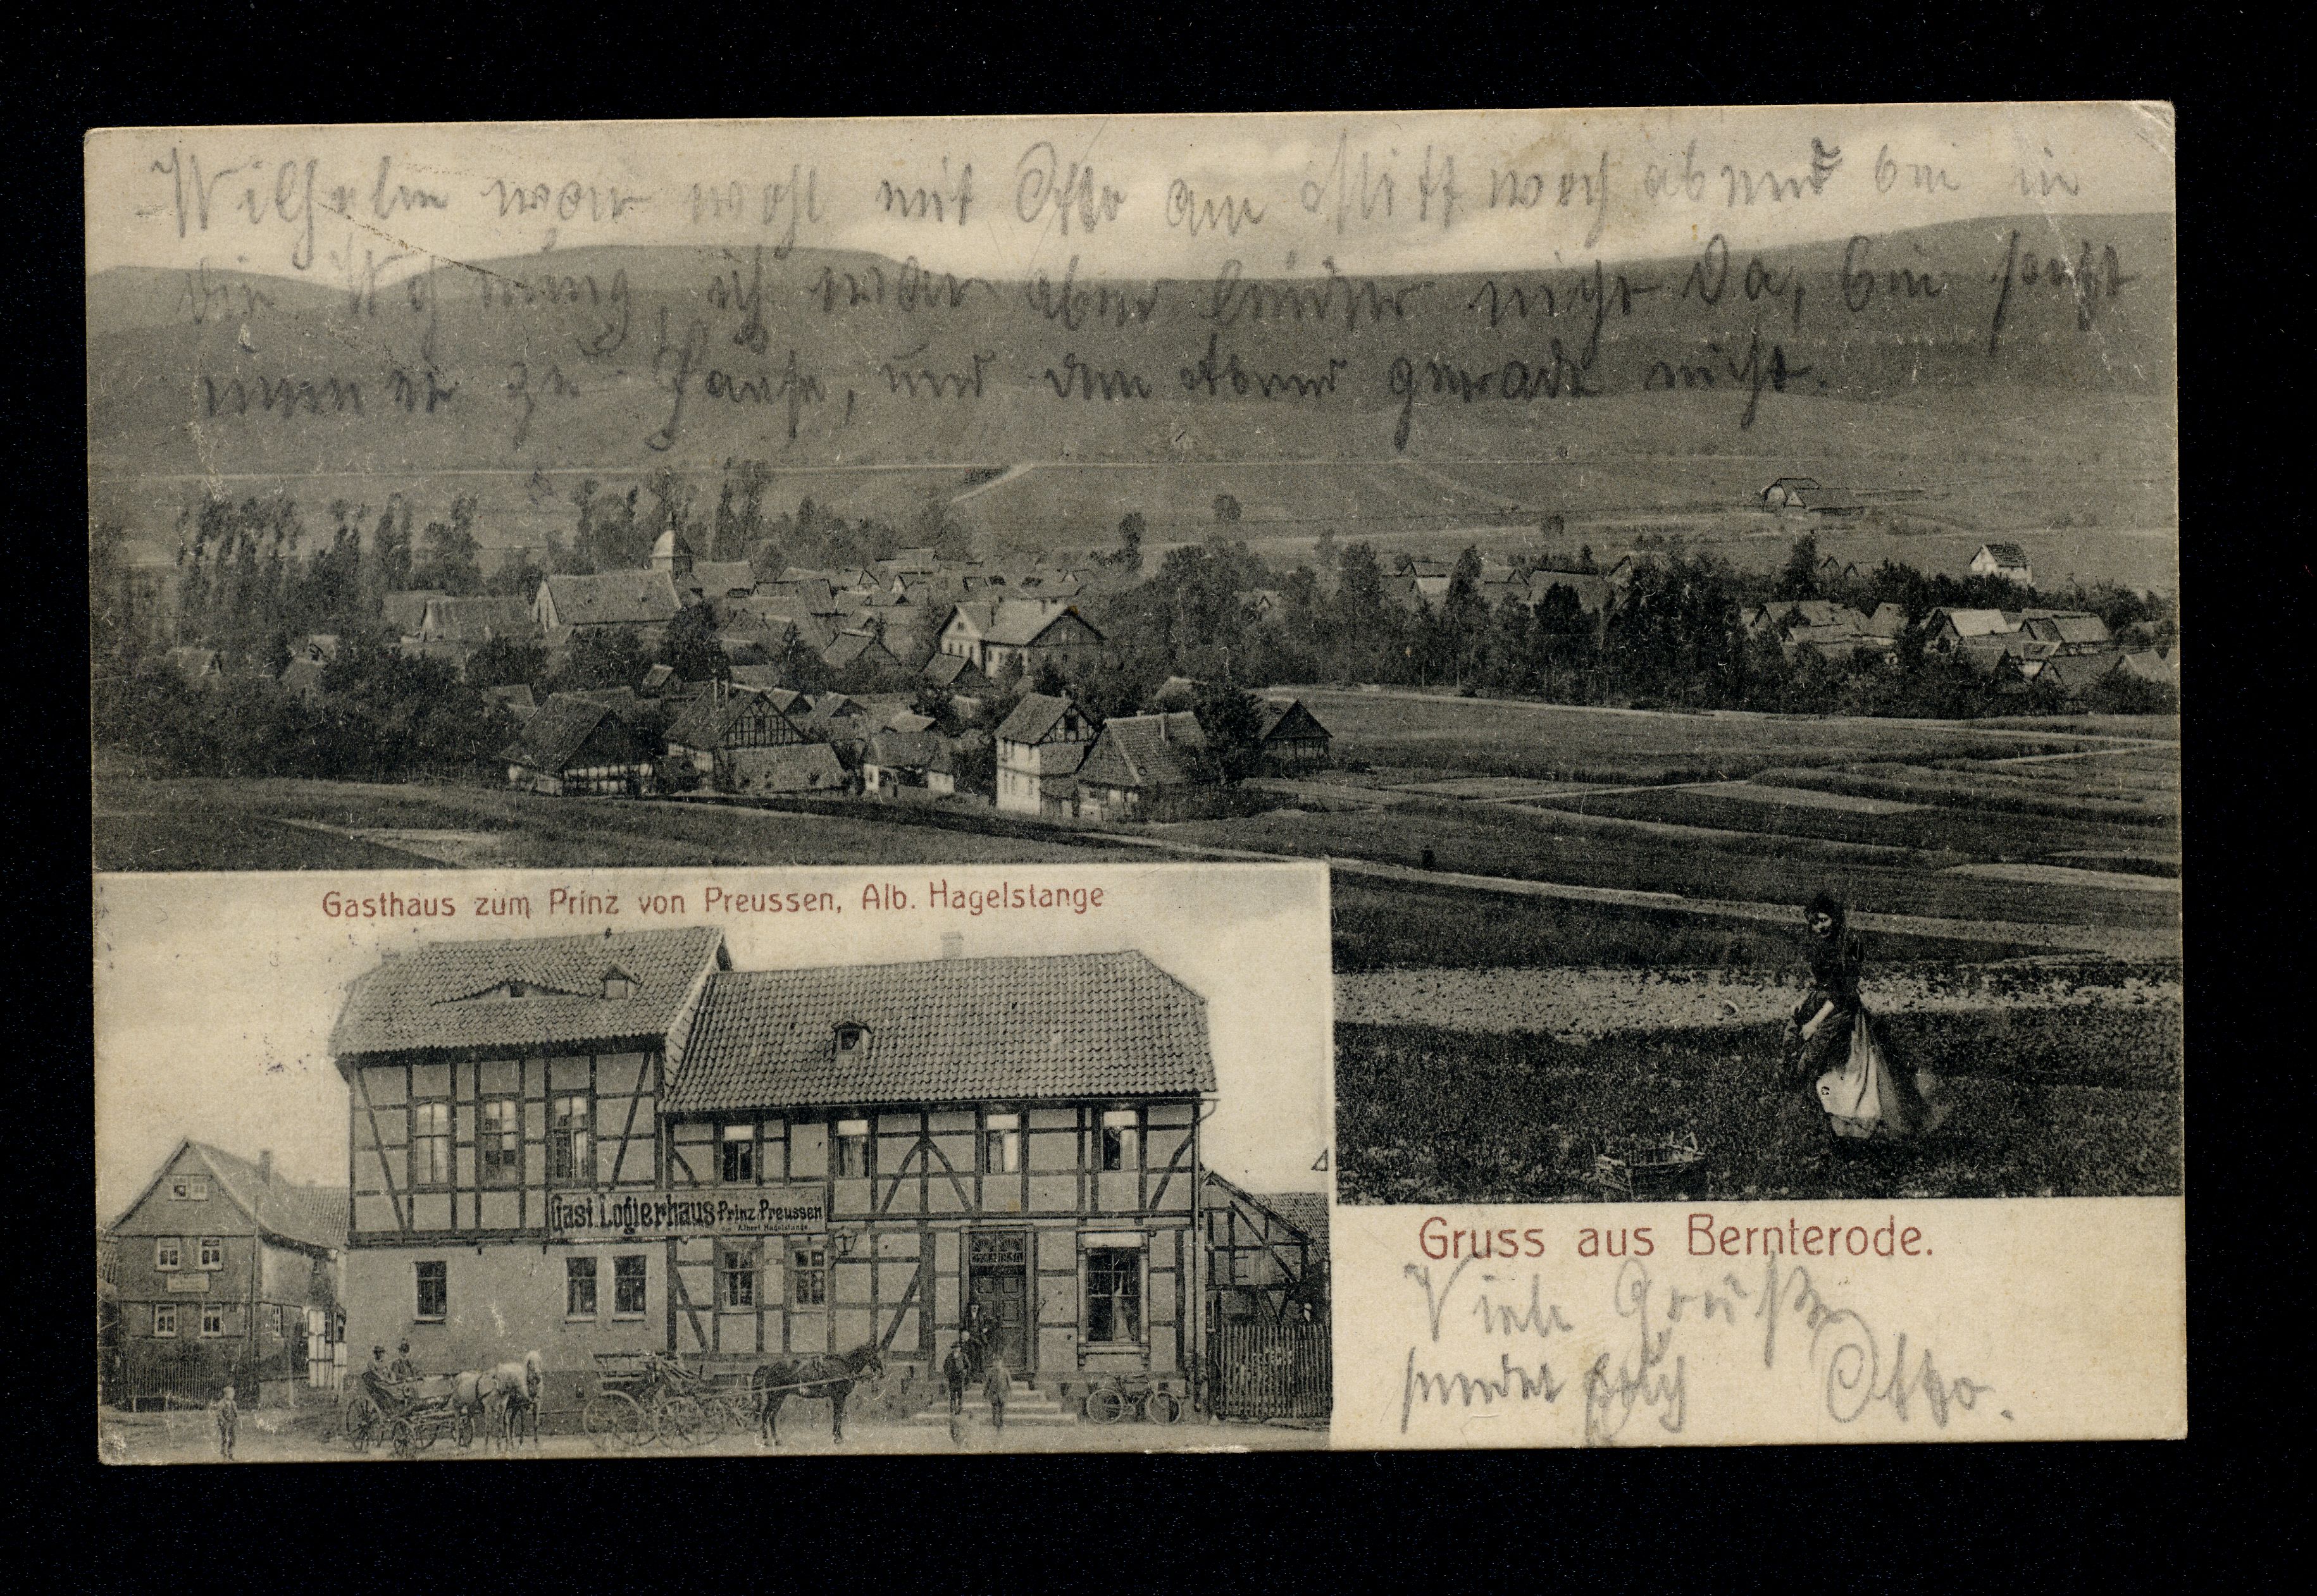 Wilhelm war wohl mit Otto am Mittwoch abend bei in
die Wohnung, ich war aber leider nicht da, bin sonst
immer zu Hause, und den Abend gerade nicht.
Gasthaus zum Prinz von Preussen, Alb. Hagelstange
Gast Logierhaus Prinz Preussen
Albert Hagelstange
Gruss aus Bernterode.
Viele Grüße
sendet Euch Otto.